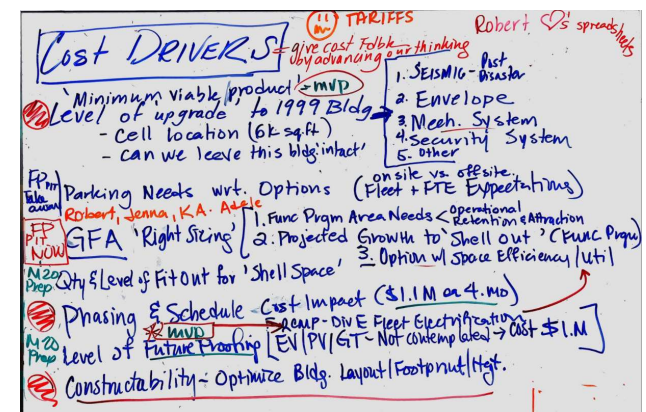 TARIFFS
Robert ♡'s spreadsheets
Cost DRIVERS = give cost Fdbk
by advancing our thinking
'Minimum viable product' → mvp
Level of upgrade to 1999 Bldg →
- Cell location (6k sq.ft)
- can we leave this bldg 'intact'
1. SEISMIC - Post Disaster
2. Envelope
3. Mech. System
4. Security System
5. Other
FP Take away
Parking Needs wrt. Options (on site vs. offsite.
Fleet + FTE Expectations)
Robert, Jenna, KA. Adele
FP PIT NOW
GFA 'Right Sizing'
1. Func Prgm Area Needs < Operational
Retention & Attraction
2. Projected Growth to 'Shell out' (Func Prgm)
3. Option w/ Space Efficiency/util
M20 Prep
Qty & Level of Fit Out for 'Shell Space'
Phasing & Schedule - Cost Impact ($1.1M or 4. mo)
* mvp
M20 Prep
Level of Future Proofing
Div E Fleet Electrification
EV/PV/GT - Not contemplated → Cost $1.M
Constructability - Optimize Bldg. Layout/Footprint/Hgt.